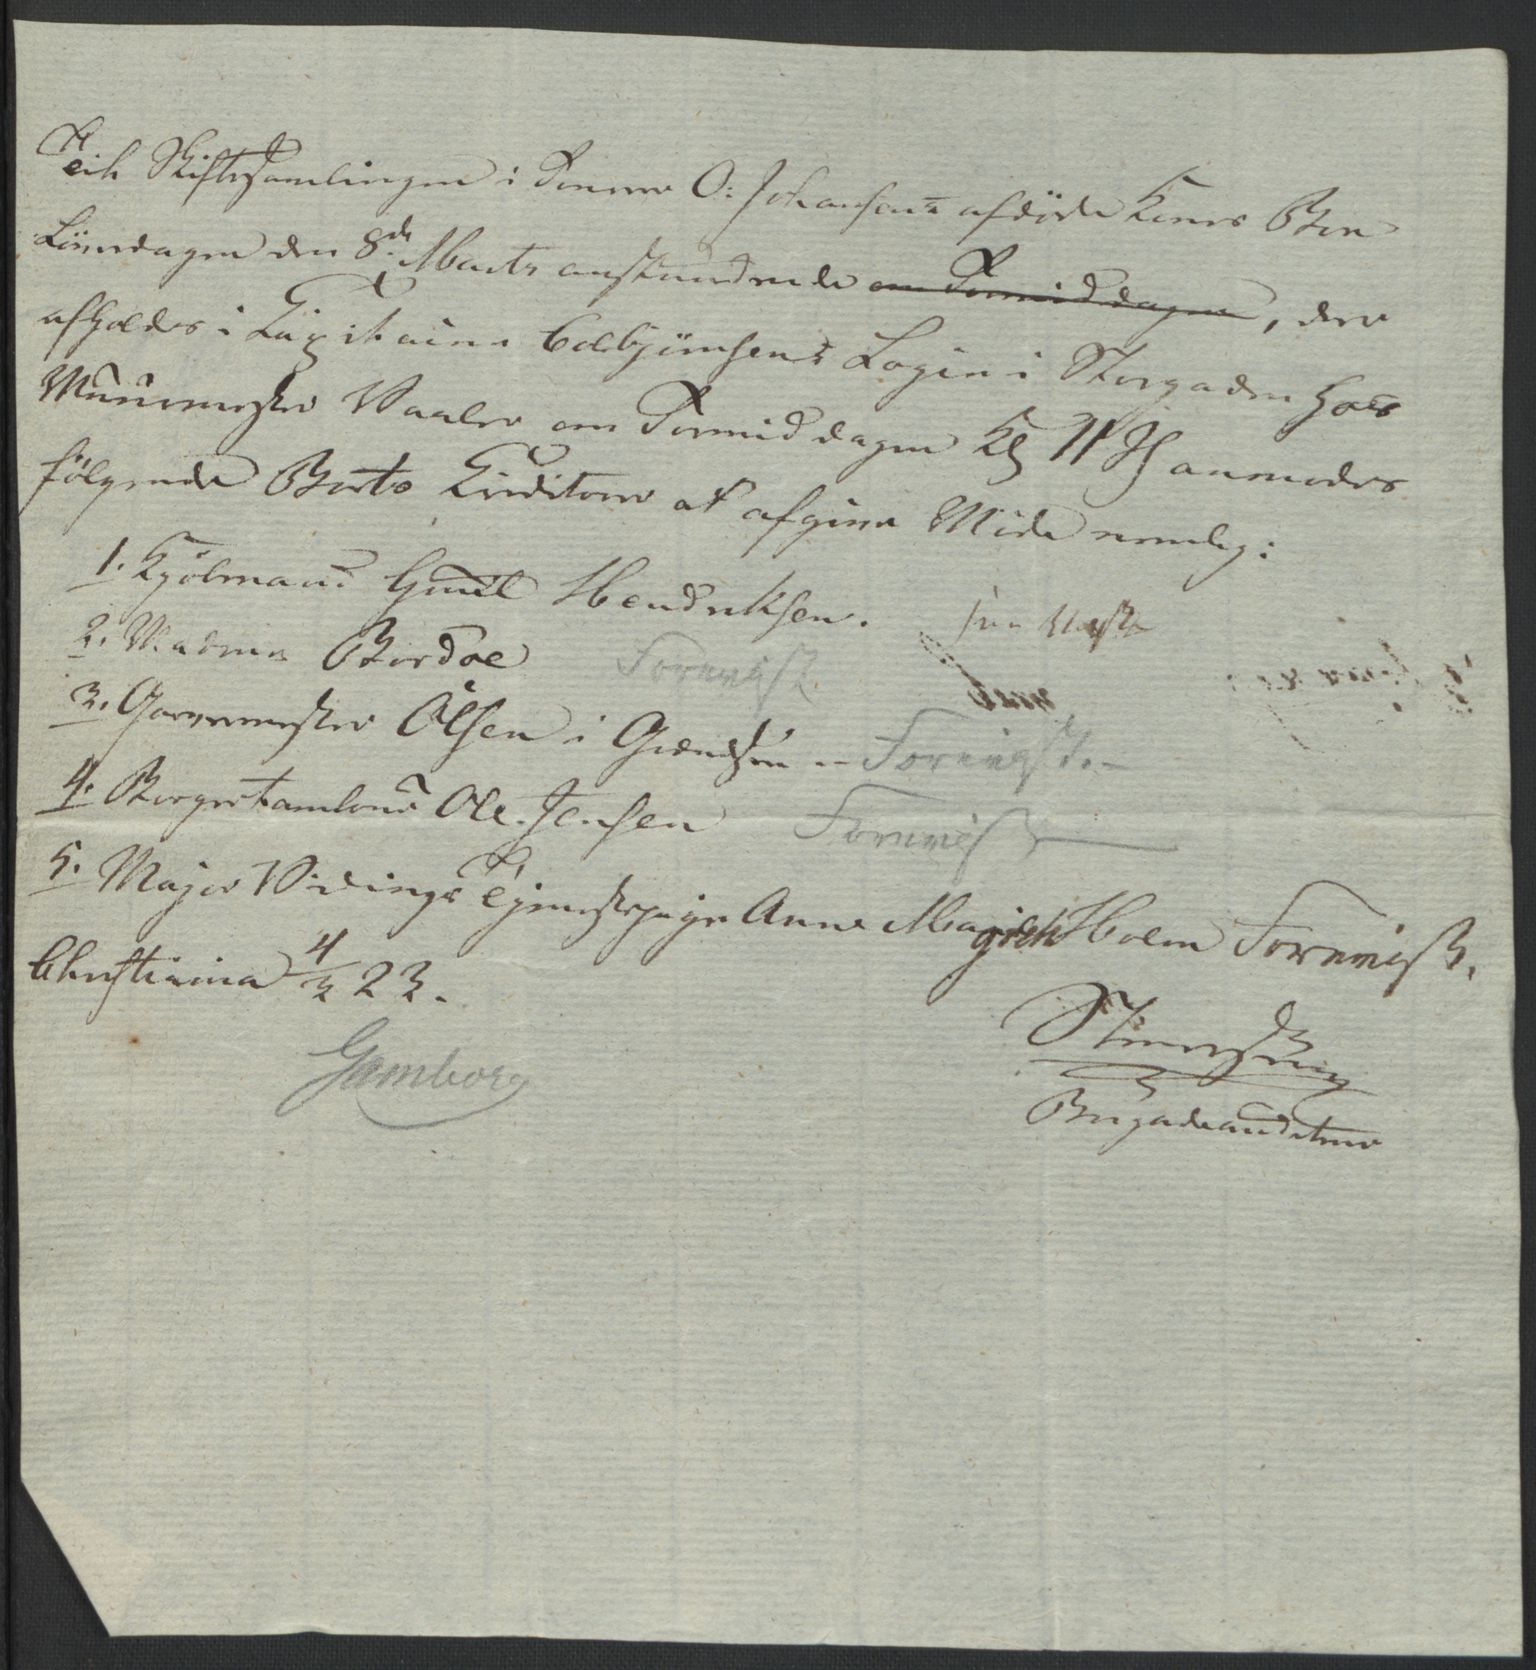 Til Skiftesamlingen i Tennes O: Johansens afdöde Kones Boe
Löverdagen den 8de Marts anstundende om Formiddagen, der
afholdes i Capitaine Colbjörnsens Logie i Storgaden hos
Muurmester Vaaler om Formiddagen Kl 11 anmodes
fölgende Boets Creditorer at afgive Möde nemlig:
1. Kjölmand Hendriksen.
2. Madme Bordoe Forevist
3. Garvermester Olsen i Grændsen – Forevist. –
4. Borgertambour Ole Jensen Forevist
5. Major Tjenestepige Anne Margreth Holm Forevist.
Christiania 4/3 23.
Steensrup
Gamborg
Brigadeauditeur